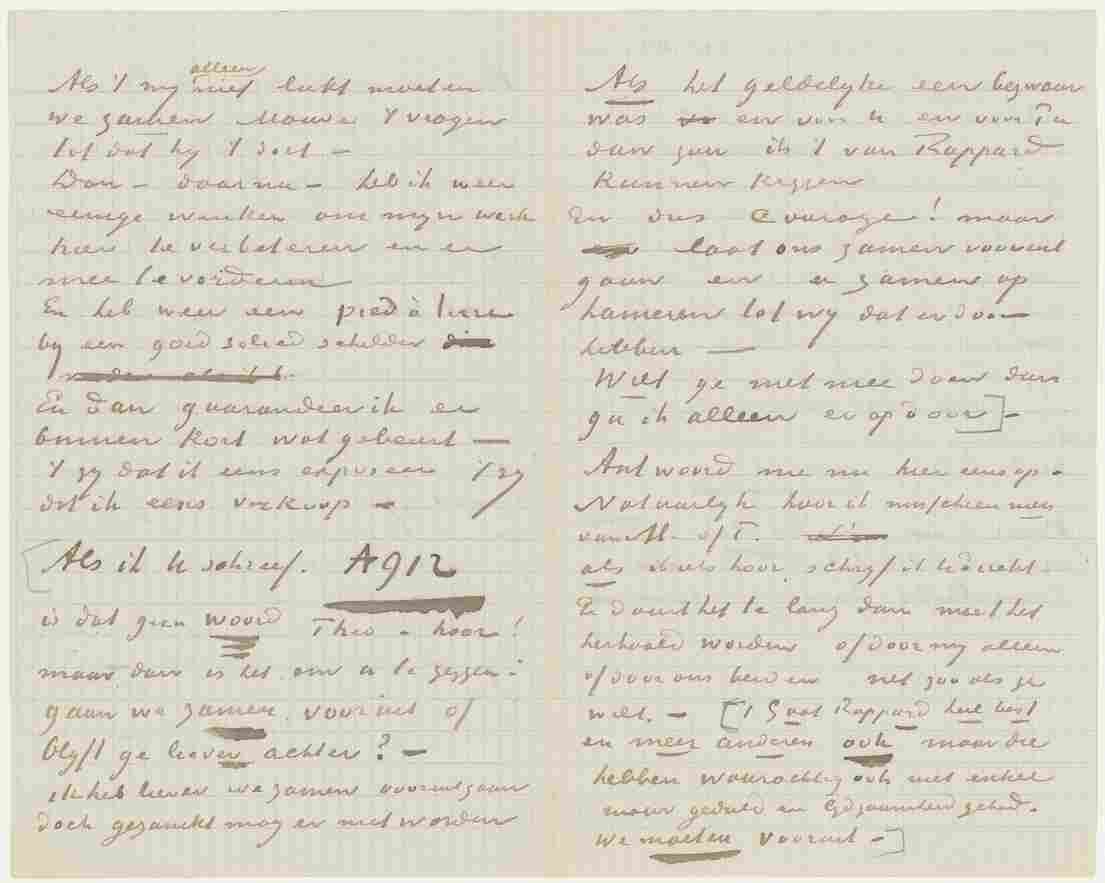 alleen
Als 't mij niet lukt moeten
we zamen Mauve 't vragen
tot dat hij 't doet —
Dan – daarna – heb ik weer
eenige wenken om mijn werk
hier te verbeteren en er
mee te vorderen
En heb weer een pied à terre
bij een goed solied schilder die
En dan guarandeer ik er
binnen kort wat gebeurt —
't zij dat ik eens exposeer 't zij
dat ik eens verkoop —
[Als ik U schreef. A 912
is dat geen woord Theo – hoor!
maar dan is het om u te zeggen:
gaan we zamen vooruit of
blijft ge liever achter? —
ik heb liever we zamen vooruitgaan
doch gezanikt mag er niet worden
Als het geldelijke een bezwaar
was en voor U en voor Pa
dan zou ik 't van Rappard
kunnen krijgen
En dus Courage! maar
laat ons zamen vooruit
gaan en er zamen op
hameren tot wij dat er door
hebben —
Wilt ge niet mee doen dan
ga ik alleen er op door] –
Antwoord me nu hier eens op.
Natuurlijk hoor ik misschien
van M. of T.
als ik iets hoor schrijf ik U direkt.
En duurt het te lang dan moet het
herhaald worden of door mij alleen
of door ons beiden net zoo als ge
wilt. – ['t Gaat Rappard heel best
en meer anderen ook maar die
hebben waarachtig ook niet enkel
maar geduld en lijdzaamheid gehad.
we moeten vooruit –]